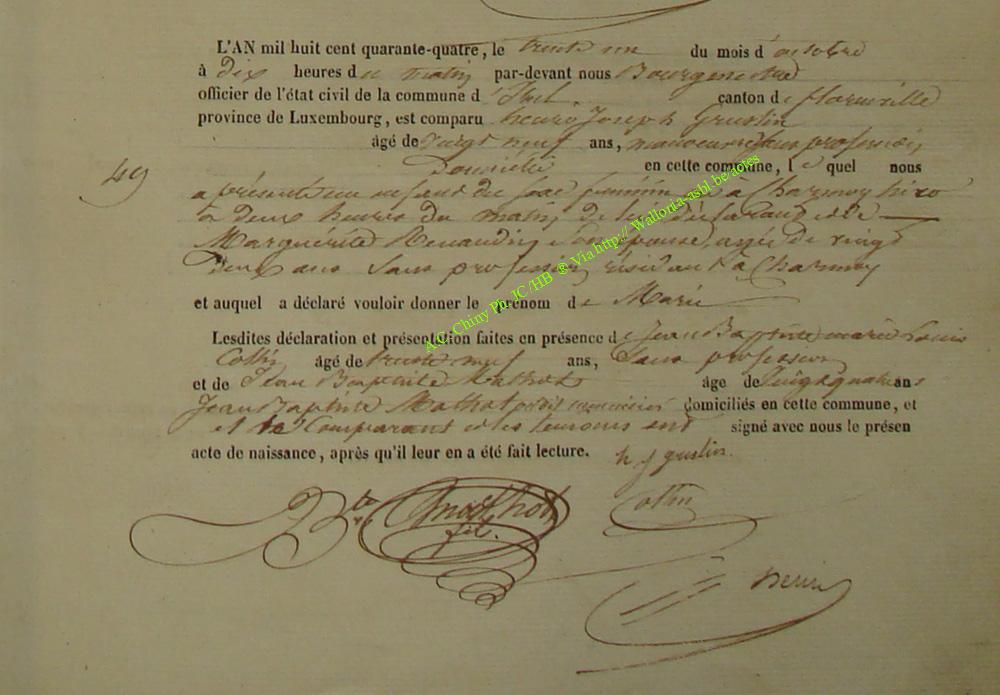 L'AN mil huit cent quarante-quatre, le trente un du mois d'octobre
à dix heures du matin par-devant nous Bourgmestre
officier de l'état civil de la commune d'Izel. canton de florenville
province de Luxembourg, est comparu henri Joseph Grustin
âgé de vingt neuf ans, manoeuvre profession
49
Domicilié en cette commune, le quel nous
a présenté un enfant du sexe féminin né à Charmoy hier
à deux heures du matin, de lui déclarant et de
Marguérite Renaudin son épouse, agée de vingt
deux ans Sans profession, résidant à Charmoy
et auquel a déclaré vouloir donner le prénom de Marie
Lesdites déclaration et présentation faites en présence de Jean Baptiste marie Louis
Collin âgé de trente neuf ans, Sans profession
et de Jean Baptiste Mathot âgé de vingt quatre ans
Jean Baptiste Mathot domiciliés en cette commune, et
et le Comparant et les temoins ont signé avec nous le présen
acte de naissance, après qu'il leur en a été fait lecture.
h j grustin
Bte Mathot
fils.
Collin
henri
A.C. Chiny Ph. JC/HB ® Via http:// Wallonia-asbl.be/actes